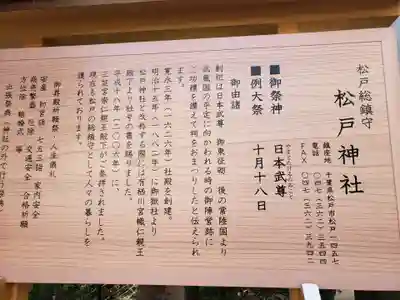 松戸総鎮守
松戸神社
鎮座地 千葉県松戸市松戸一四五七
電話 〇四七(三六二)三五四四
FAX 〇四七(三六二)三九四二
■御祭神 日本武尊
やまとたけるのみこと
■例大祭 十月十八日
御由諸
創祀は日本武尊 御東征砌 後の常陸国より
武蔵国の平定に向かわれる時の御陣営跡に
ご功績を讃えて祠をおまつりしたと伝えられ
ます。
寛永三年(一六二六年)社殿を創建。
明治十五年(一八八二年)に御嶽社より
松戸神社と改称する際には有栖川宮幟仁親王
殿下より社号の書を賜りました。
平成十八年(二〇〇六年)に、
三笠宮崇仁親王殿下がご参拝されました。
現在も松戸の総鎮守として人々の暮らしを
護られております。
御昇殿祈願祭・人生儀礼
安産 初宮詣 七五三詣 家内安全
商売繁盛 厄除 交通安全 合格祈願
方位除 結婚式 等
出張祭典(神社の外で行う